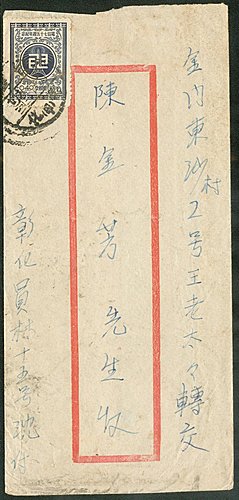 金门東沙村2号王老杰々轉交
陳金芳先生收
彰化員林十五号